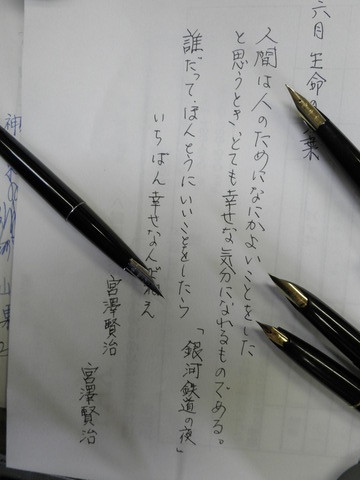 六月 生命の葉
人間は人のためになにかよいことをした
と思うとき、とても幸せな気分になれるものである。
誰だって、ほんとうにいいことをしたら
いちばん幸せなんだねえ
「銀河鉄道の夜」
宮澤賢治
宮澤賢治